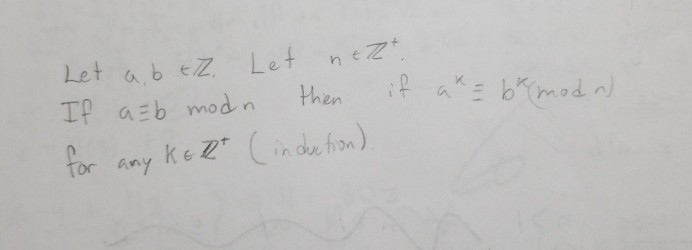 Let a, b ∈ ℤ. Let n ∈ ℤ⁺.
If a ≡ b mod n then if aᵏ ≡ bᵏ (mod n)
for any K ∈ ℤ⁺ (induction).